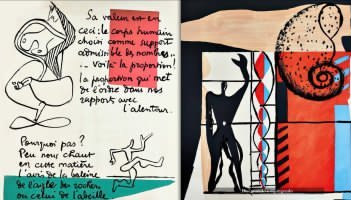 Sa valeur est en
ceci : le corps humain
choisi comme support
admissible des nombres..
... Voilà la proportion!
la proportion qui met
de l'ordre dans nos
rapports avec
l'alentour.
Pourquoi pas?
Peu nous chaut
en cette matière
l'avis de la baleine
de l'aigle des rochers
ou celui de l'abeille